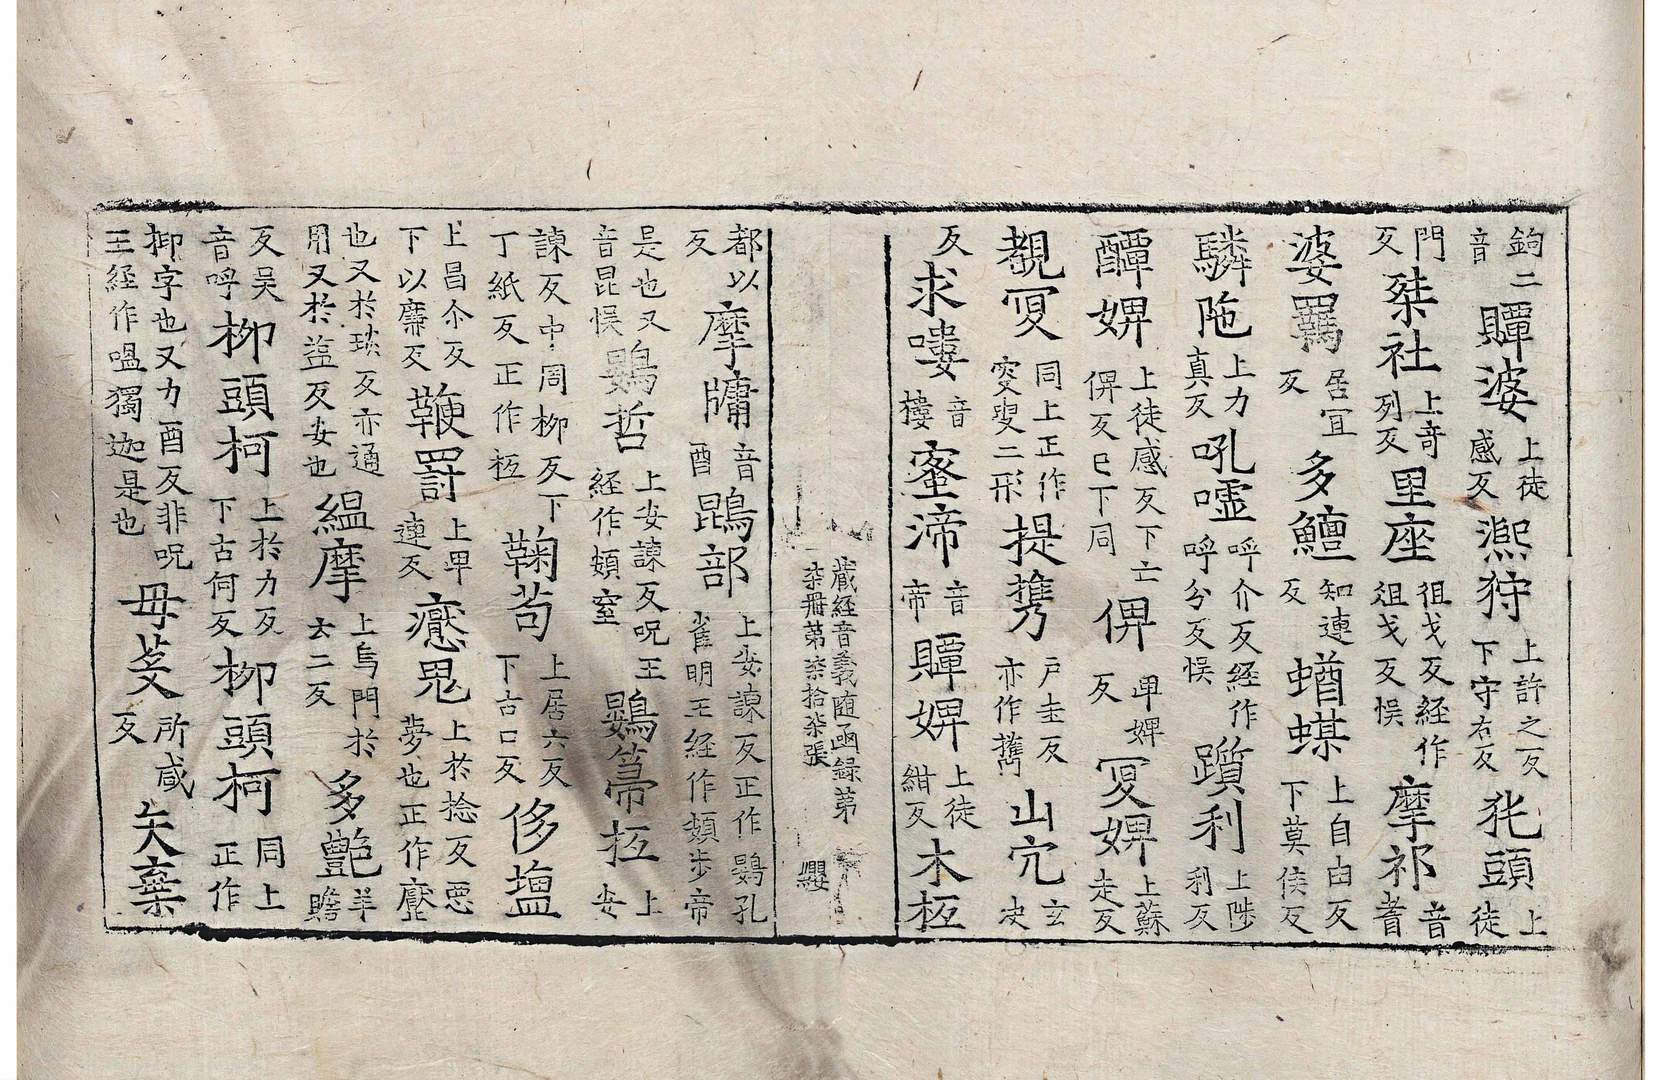 鉤二音賵婆上徒感反㵙狩上許之反下守右反狏頭上徒
門反桀社上奇列反里座徂戈反経作俎戈反悮摩祁音耆
婆羂居宜反多鱣知連反蝤蟆上自由反下莫侯反
驎陁上力真反吼嘘呼介反経作呼分反悮躓利上陟利反
醰婢上徒感反下亡俾反巳下同俾卑婢反冥婢上蘇走反
覩冥同上正作窔叟二形提攜户圭反亦作攜山宂玄決
反求嘍音樓蜜渧音帝贉婢上徒紺反木柾
藏経音義随函録第柒冊第柒拾柒張 纓
都以反摩牗音酉鵾部上安諫反正作鷃孔雀明王経作頞步帝
是也又音昆悮鷃哲上安諫反呪王経作頞室鷃篅柾上安
諫反中周柳反下丁紙反正作柾鞠苟上居六反下古口反侈塩
上昌尒反下以廉反鞭罸上卑連反癔鬼上於捻反悪夢也正作魘
也又於琰反亦通用又於盗反安也縕摩上烏門於云二反多艶羊贍
反吴音呼柳頭柯上於力反下古何反柳頭柯同上正作
抑字也又力酉反非呪王経作嗢獨迦是也毋芟所咸反矢棄